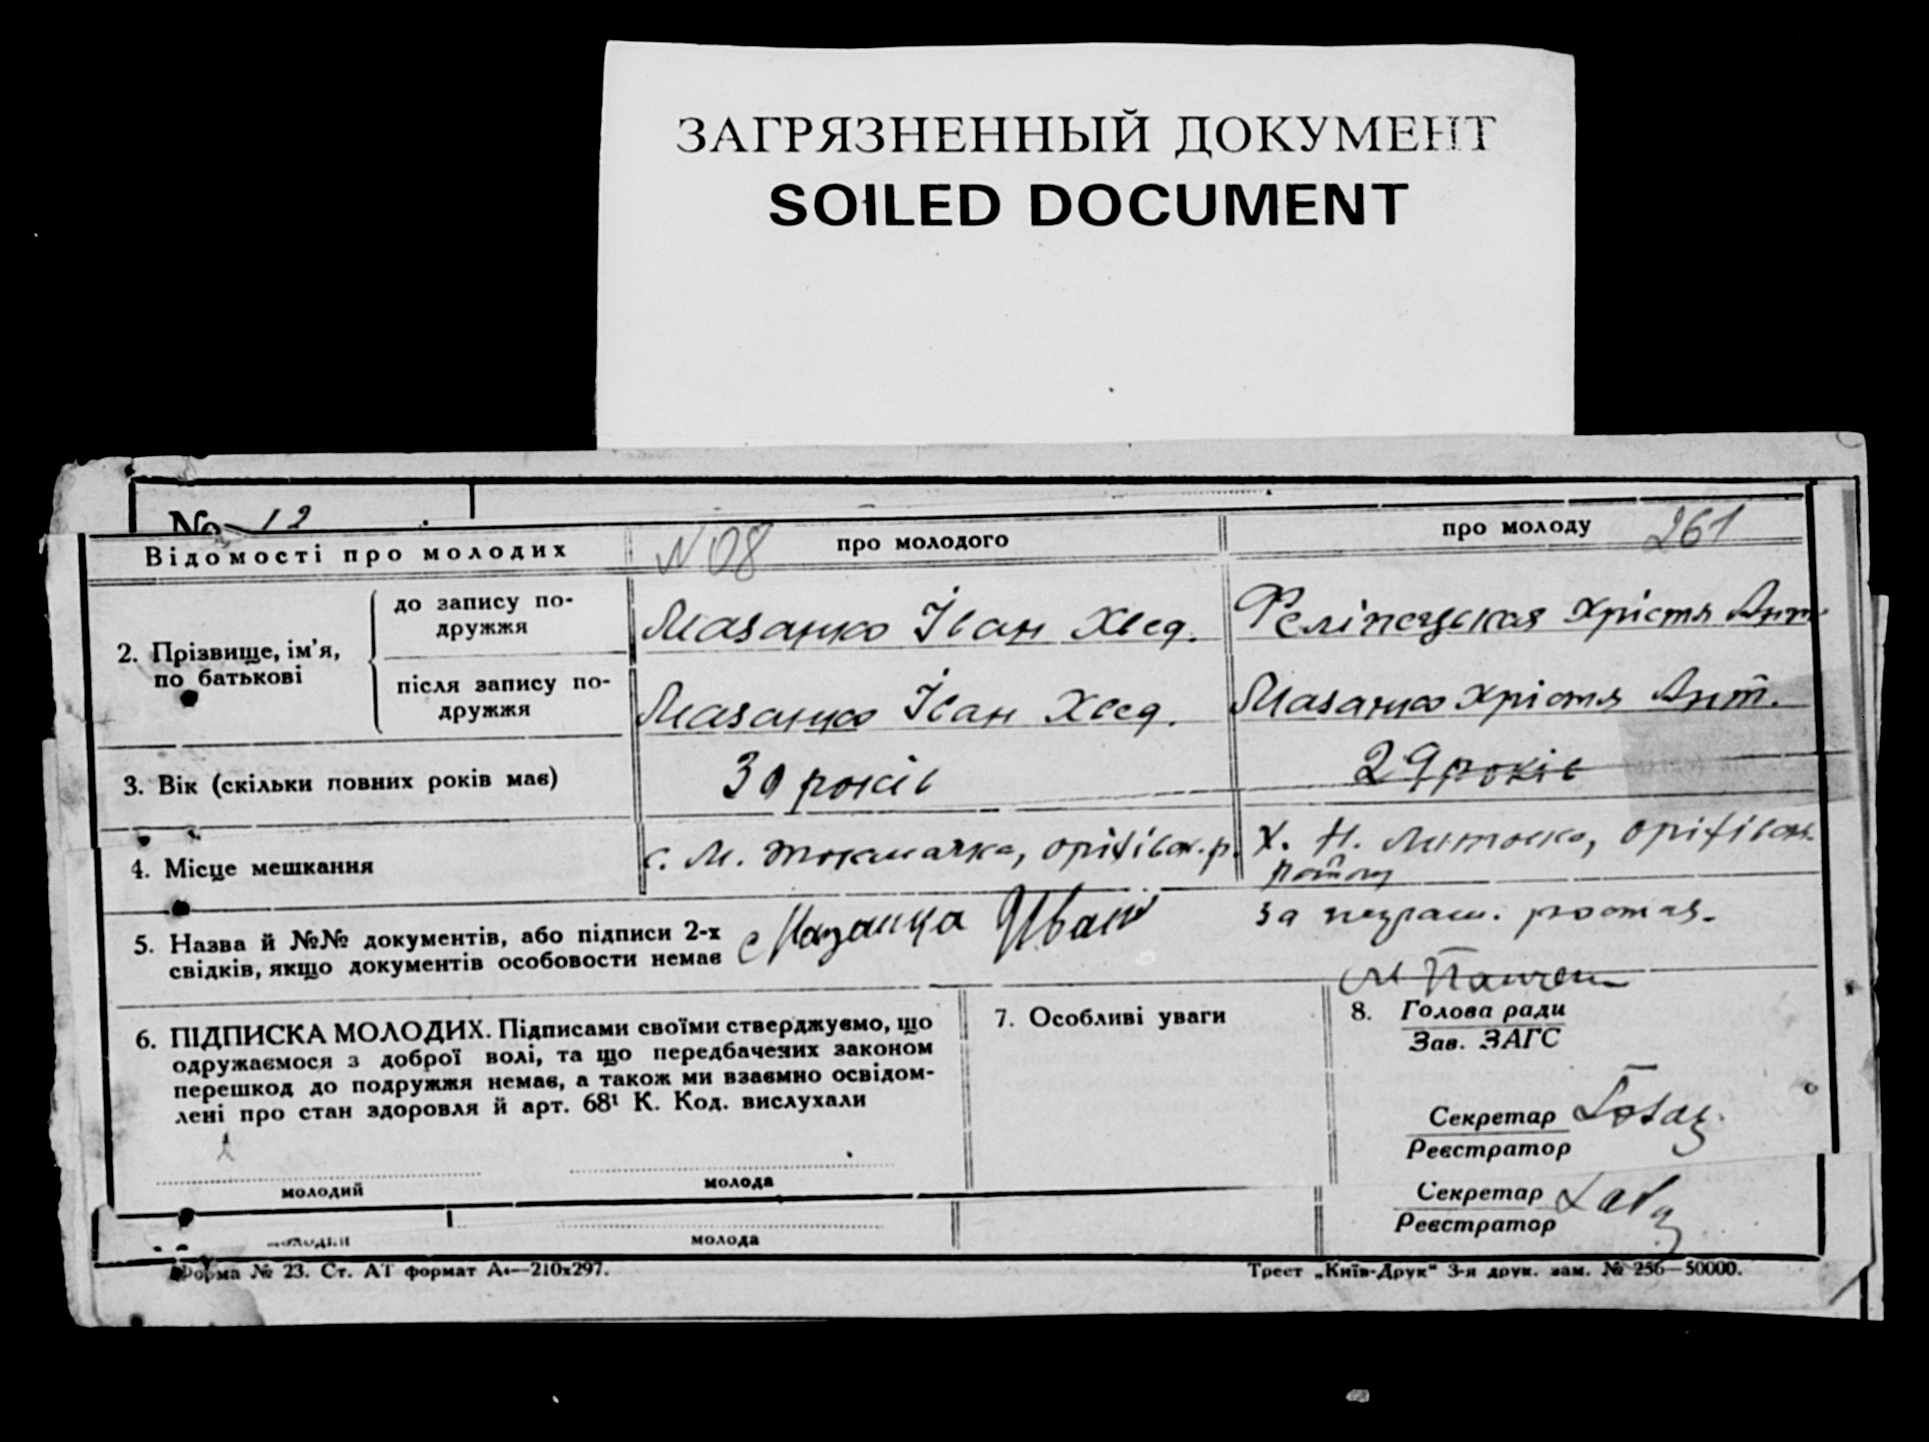 ЗАГРЯЗНЕННЫЙ ДОКУМЕНТ
SOILED DOCUMENT
№ 12
Відомості про молодих
N 08 про молодого
про молоду 261
2. Прізвище, ім'я,
по батькові
до запису по-
дружжя
Мазанко Іван Хвед.
Христя Ант.
після запису по-
дружжя
Мазанко Іван Хвед.
Мазанко Хрістя Ант.
3. Вік (скільки повних років має)
30 років
29 років
4. Місце мешкання
с. М. Токмачка, оріхівск. р.
Х. Н.
5. Назва й №№ документів, або підписи 2-х
свідків, якщо документів особовости немає
Иван
за неграм.
6. ПІДПИСКА МОЛОДИХ. Підписами своїми стверджуємо, що
одружаємося з доброї волі, та що передбачених законом
перешкод до подружжя немає, а також ми взаємно освідом-
лені про стан здоровля й арт. 68¹ К. Код. вислухали
молодий
молода
7. Особливі уваги
8. Голова ради
Зав. ЗАГС
Секретар
Реєстратор
Секретар
Реєстратор
молодий
молода
Форма № 23. Ст. АТ формат А₄—210х297.
Трест „Київ-Друк“ 3-я друк. зам. № 256—50000.